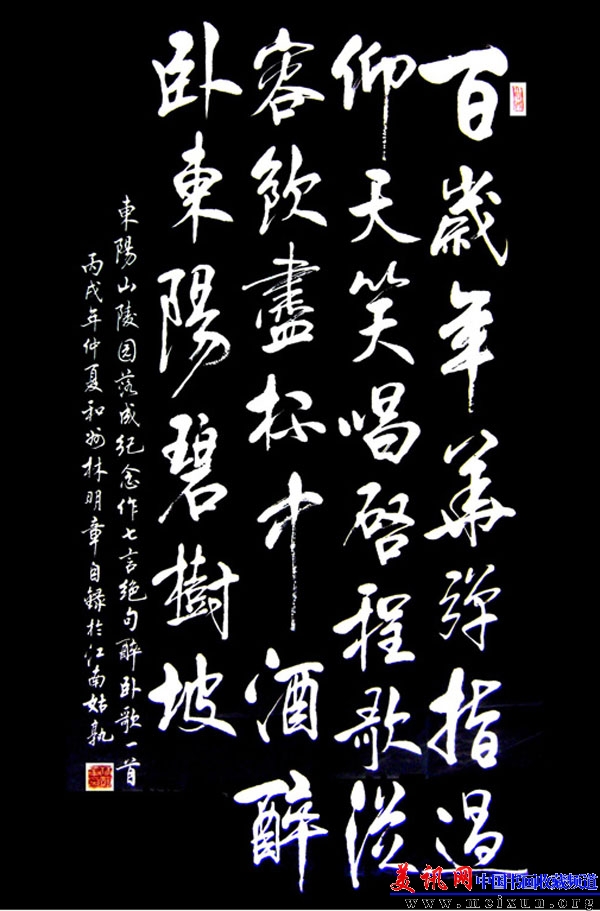 百歲年華彈指過
仰天笑唱啓程歌從
容飲盡杯中酒醉
卧東陽碧樹坡
東陽山陵园落成纪念作七言绝句醉卧歌一首
丙戌年仲夏和州林明章自録於江南姑孰
美讯网 中国书画收藏频道
www.meixun.org